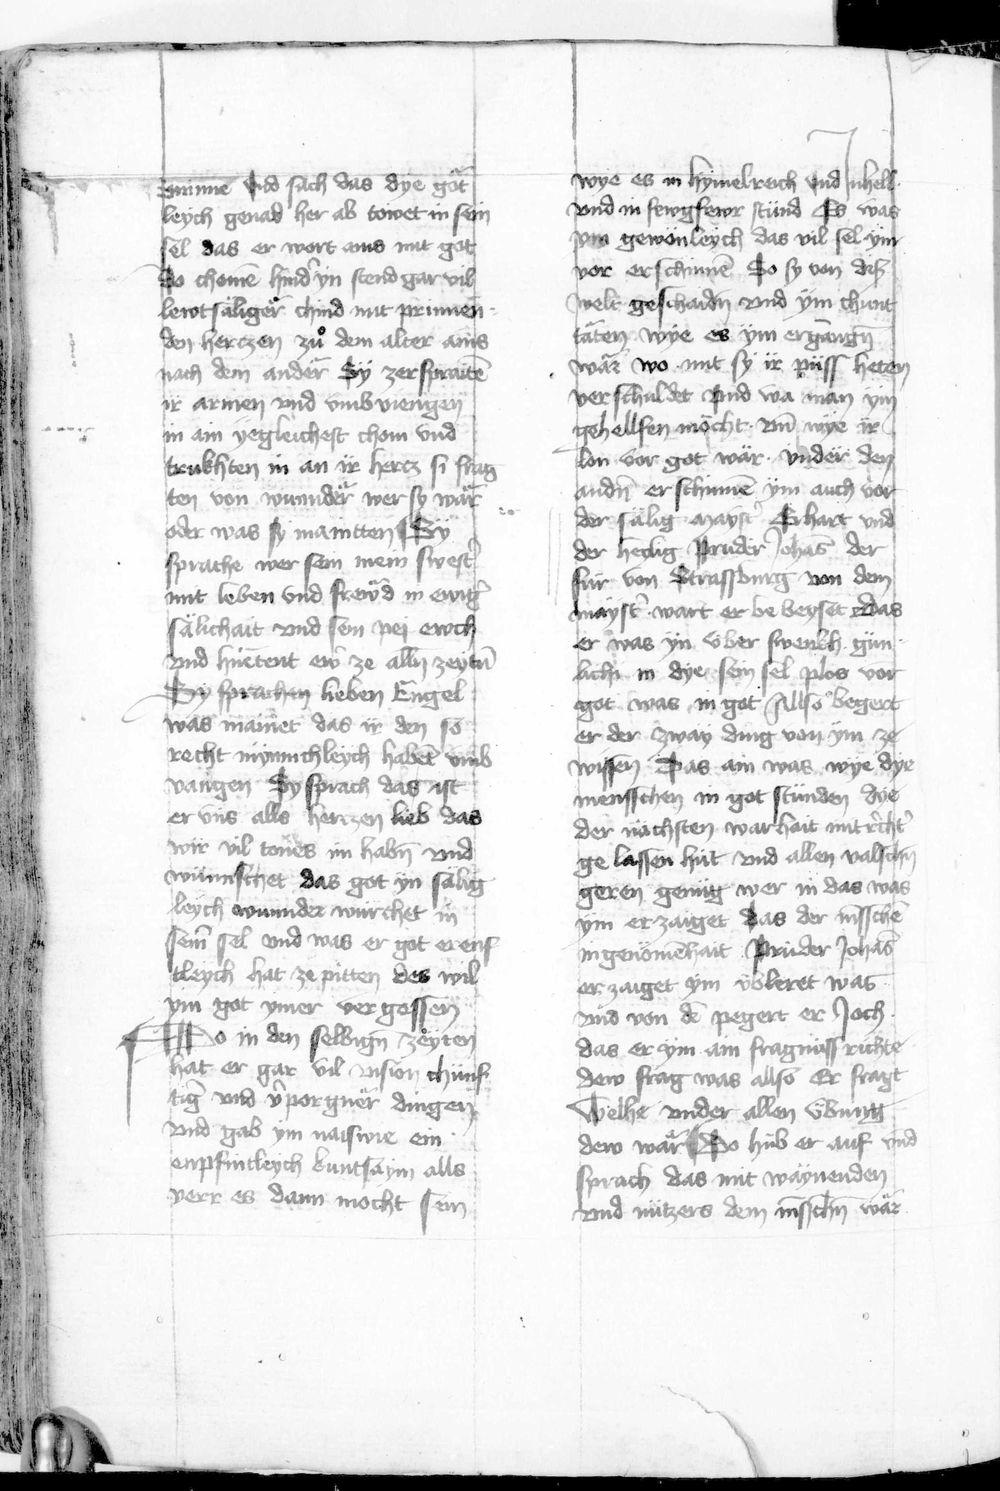 minne Vnd sach das dye göt
leych genad her ab towet in sein
sel das er wort ains mit got
do chomē hindˀ yn stend gar vil
lewtsäliger chind mit prinnen
den hertzen zů dem alter ains
nach dem ander Sy zerspraitē
ir armen vnd vmbviengen
in ain yegleichest chom vnd
trukhten in an ir hertz si frag
ten von wunder wer sy wär
oder was sy mainten Sy
sprache wer sein mein swestˀ
mit leben vnd frewd in ewigˀ
sälichait vnd sein pei ewch
vnd hüetent ew ze alln zeytn̄
Sy sprachen lieben Engel
was mainet das ir den so
recht mynnichleych habet vmb
vangen Sy sprach das ist
er vns alls hertzen lieb das
wir vil toües im habn̄ vnd
wünnschet das got yn sälig
leych wunnder würchet in
seinˀ sel vnd was er got erenst
tleych hat ze pitten des wil
ym got ymer vergessen
Do in den selbign̄ zeyten
hat er gar vil vision chünf
tigˀ vnd vˀporgner dingen
vnd gab ym naiswie ein
enpfintleych kuntsaym alls
verr es dann mocht sein
wye es in hymelreich vnd in hell
vnd in fewgfewr stünd Es was
ym gewönleych das vil sel ym
vor erschinnē Do sy von disˀ
welt geschaidn̄ vnd ym chunt
täten wye es ym ergangn̄
wär wo mit sy ir püss heten
verschuldet vnd wa man ym
gehellfen möcht vn̄ wye ir
lon vor got wär vnder den
andn̄ erschinnē ym auch vor
der sälig maystˀ Ekhart vnd
der heylig Pruder Johās der
für von Strassburg von dem
maystˀ wart er be beyset das
er was yn über swenkh gün
lichi in dye sein sel plos vor
got was in got Allso begert
er der zway ding von ym ze
wissen Das ain was wye dye
mensschen in got stünden dye
der nächsten warhait mit rˀchtˀ
ge lassen hiit vnd allen valschn̄
geren genüg wer in das was
ym erzaiget das der mēsschē
ingenōmēhait Pruder Johās
erzaiget ym vbleret was
vnd von dē pegert er Joch
das er ym ain fragniss richte
dew frag was allso Er fragt
Welhe vnder allen übung
dew wär Do hüb er auf vnd
sprach das nit waynenden
vnd nützers dem mēsschn̄ wär